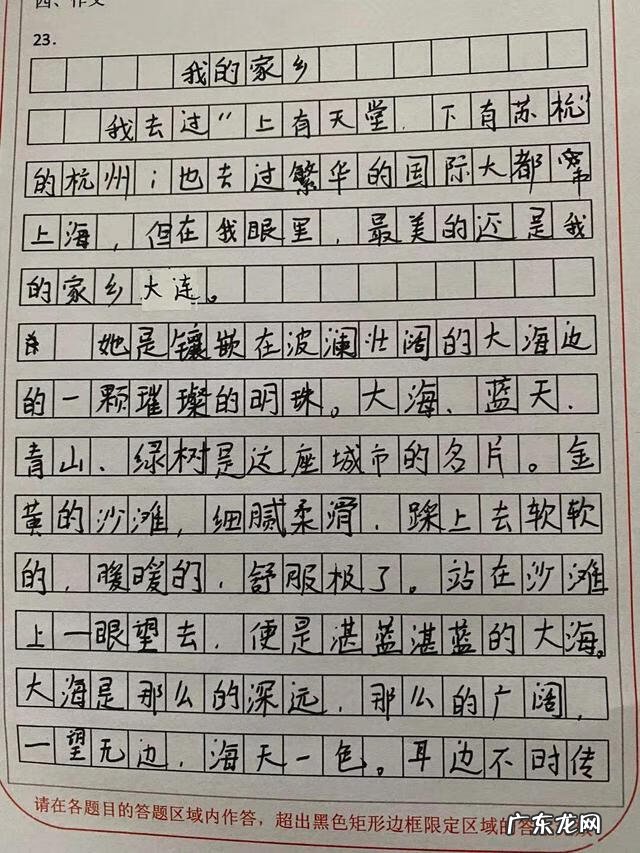 四、作文
23.
我的家乡
我去过"上有天堂,下有苏杭"
的杭州;也去过繁华的国际大都
上海,但在我眼里,最美的还是我
的家乡大连。
她是镶嵌在波澜壮阔的大海边
的一颗璀璨的明珠。大海、蓝天、
青山、绿树是这座城市的名片。金
黄的沙滩,细腻柔滑,踩上去软软
的,暖暖的,舒服极了。站在沙滩
上一眼望去,便是湛蓝湛蓝的大海。
大海是那么的深远,那么的广阔,
一望无边,海天一色。耳边不时传
请在各题目的答题区域内作答,超出黑色矩形边框限定区域的答
广东龙网